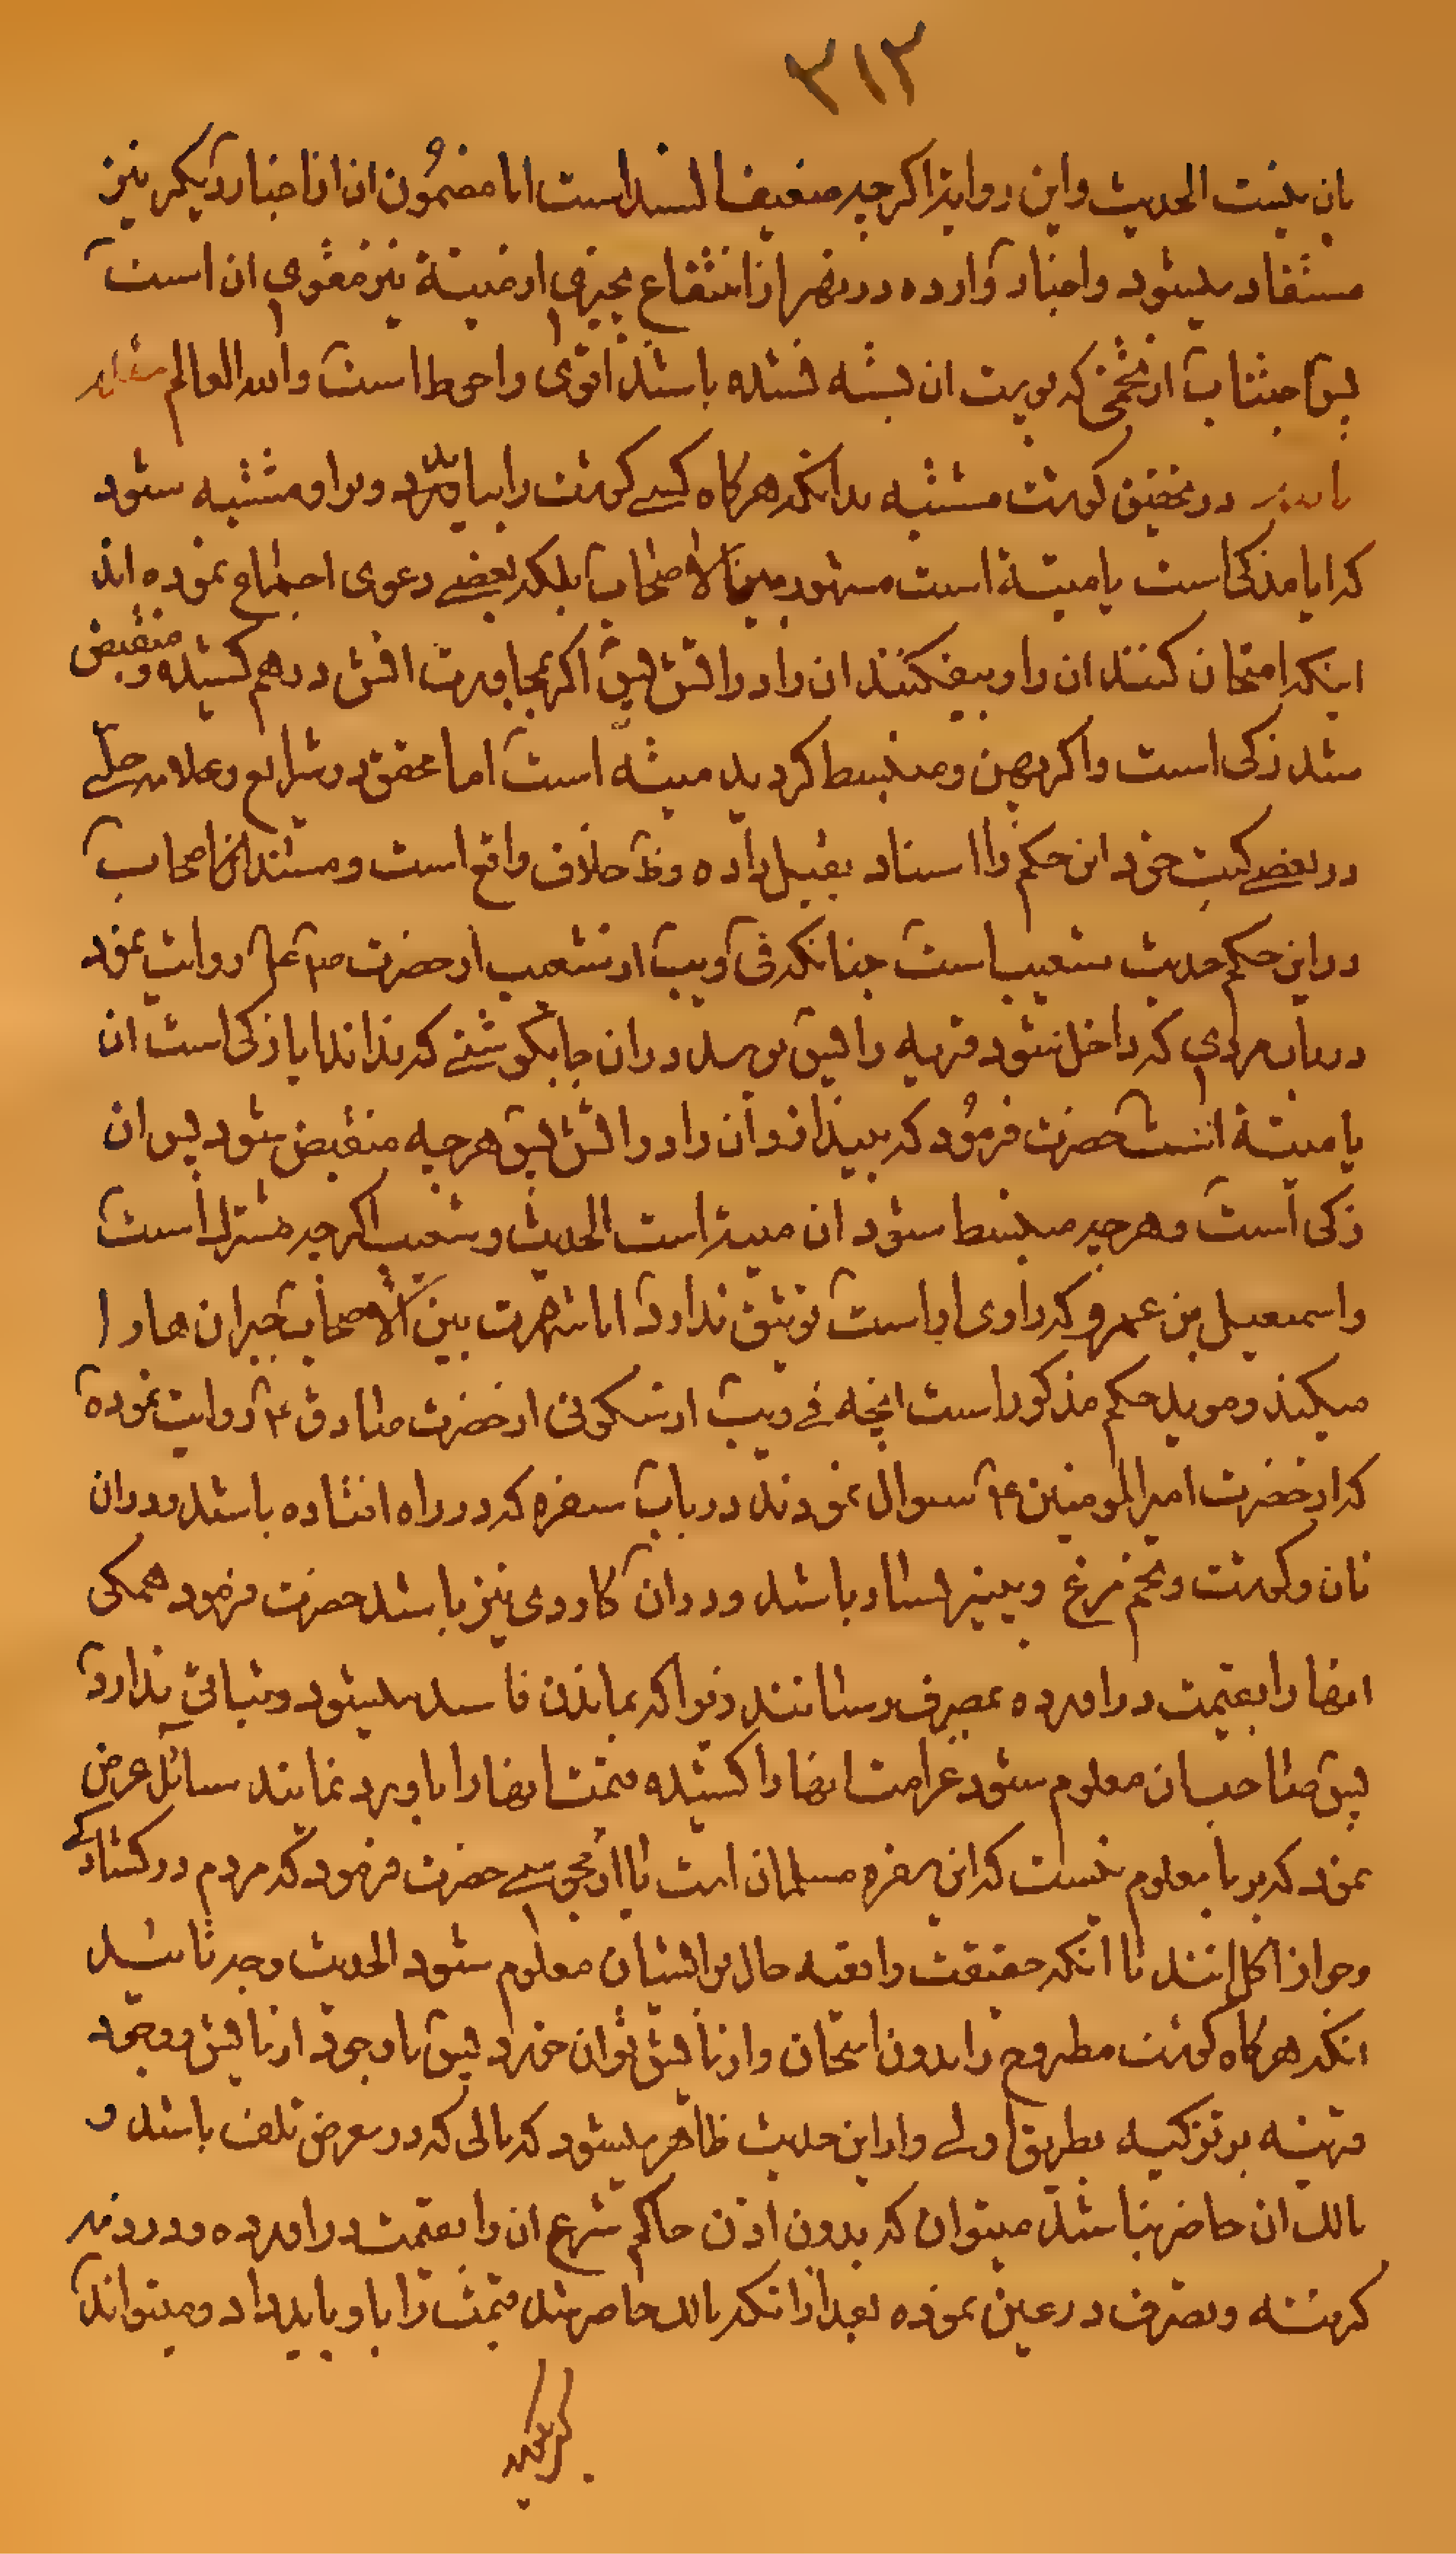 ۳۱۳
بان نیست الحدیث و این روایة اکرچه ضعیف السند است اما مضمون ان از اخبار دیکر نیز
مستفاد میشود و اخبار وارده در نهی از انتفاع بچیزی از میتة نیز مقوی ان است
پس اجتناب از تخمی که پوست ان بسته نشده باشد اقوی و احوط است والله العالم
در تحقیق کوشت مشتبه بدانکه هرکاه کسی کوشت را بیابد و براو مشتبه شود
که ایا مذکی است یا میتة است مشهور بین الاصحاب بلکه بعضی دعوی اجماع نموده اند
اینکه امتحان کنند ان را و بیفکنند ان را در اتش پس اکر بمجاورت اتش درهم کشیده و منقبض
شد زکی است و اکر پهن و منبسط کردید میته است اما محقق در شرایع و علامه حلی
در بعضی کتب خود این حکم را اسناد بقیل داده و ظ خلاف واقع است و مستند اکثر اصحاب
در این حکم حدیث شعیب است چنانکه فی و یب از شعیب از حضرت روایت نمود
در باب مردی که داخل شود قریه را پس برسد در ان جا بکوشتی که نداند ایا زکی است ان
یا میتة است حضرت فرمود که بیندازد ان را در اتش پس هرچه منقبض شود پس ان
زکی است و هرچه منبسط شود ان میته است الحدیث و شعیب اکرچه مشترک است
و اسمعیل بن عمرو که راوی او است توثیق ندارد اما شهرت بین الاصحاب جبران ها را
میکند و موید حکم مذکور است انچه فی و یب از سکونی از حضرت صادق ع روایت نموده
که از حضرت امیر المومنین ع سوال نمودند در باب سفره که در راه افتاده باشد و در ان
نان و کوشت و تخم مرغ و پنیر بسیار باشد و در ان کاردی نیز باشد حضرت فرمود همکی
انها را بقیمت دراورده بمصرف برسانند زیرا که بماندن فاسد میشود و ثباتی ندارد
پس صاحب ان معلوم شود غرامت انها را کشیده قیمت انها را باو رد نمایند سائل عرض
نمود که بر ما معلوم نیست که این سفره مسلمان است یا از مجوسی حضرت فرمود که مردم در کشادکی
و جواز اکل اند تا انکه حقیقت واقعه حال بر ایشان معلوم شود الحدیث وجه تایید
انکه هرکاه کوشت مطروح را بدون امتحان و ازمایش توان خورد پس با وجود ازمایش و وجود
قرینه بر تزکیه بطریق اولی و از این حدیث ظاهر میشود که مالی که در معرض تلف باشد و
مالک ان حاضر نباشد میتوان که بدون اذن حاکم شرع ان را بقیمت دراورده و در ذمه
کرفته و تصرف در عین نموده بعد از انکه مالک حاضر شد قیمت را باو باید داد و میتواند